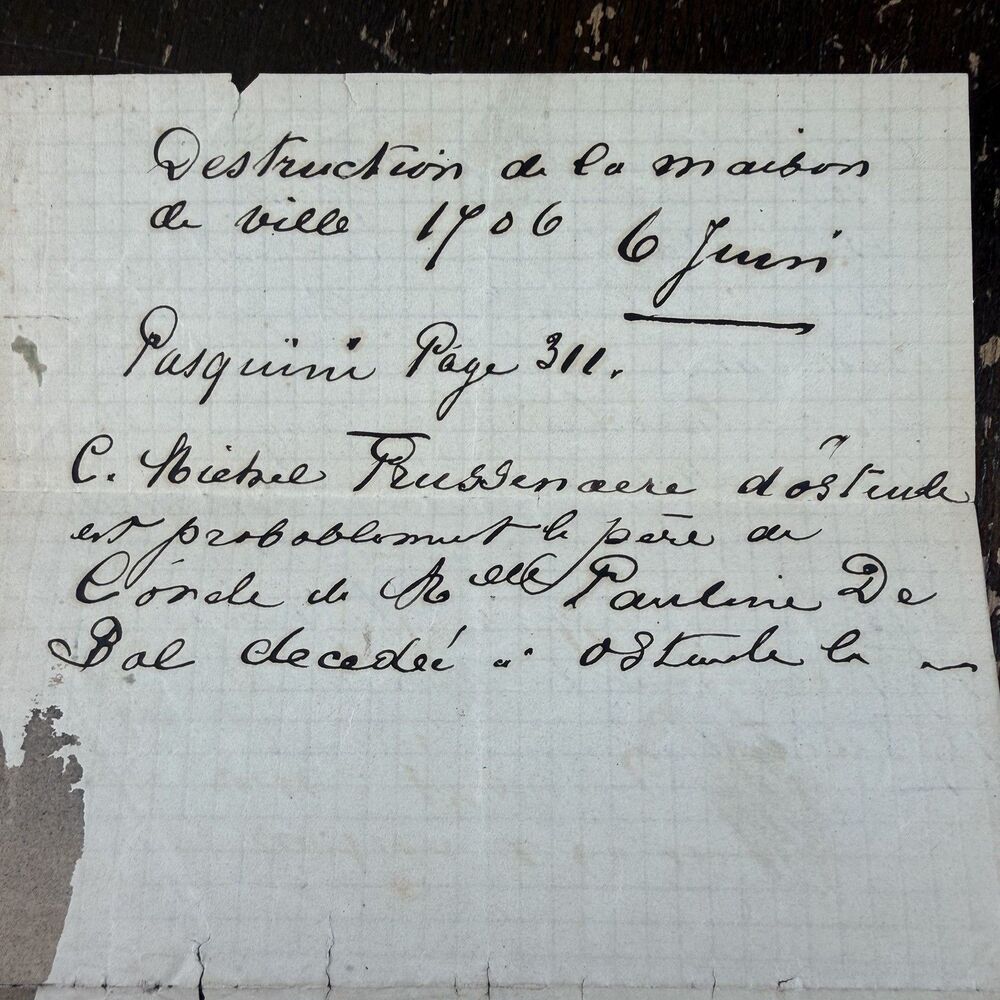 Destruction de la maison
de ville 1706 6 Juin
Pasquini Page 311.
C. Michel Russenaere d'ostende
est probablement le père de
L'oncle de Melle Pauline De
Bal decedeé a ostende le